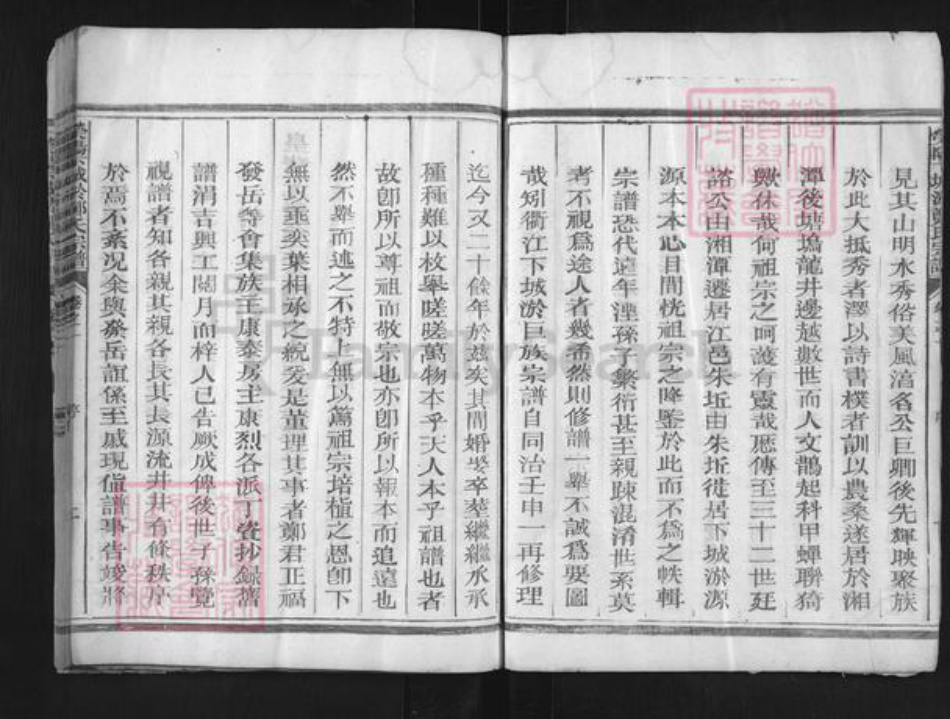 見其山明水秀俗美風湻名公巨卿後先輝映聚族
於此大抵秀者澤以詩書樸者訓以農桑遂居於湘
潭後塘塢龍井邊越數世而人文鵲起科甲蟬聯猗
歟休哉何祖宗之呵護有靈哉歷傳至三十二世廷
諮公由湘潭遷居江邑朱坵由朱坵徙居下城淤源
源本本心目間恍祖宗之降鑒於此而不爲之帙輯
宗譜恐代遠年湮孫子繁衍甚至親踈混淆世系莫
考不視爲途人者幾希然則修譜一舉不誠爲要圖
哉矧衢江下城淤巨族宗譜自同治壬申一再修理
迄今又二十餘年於茲矣其間婚娶卒塟繼繼承承
種種難以枚舉嗟嗟萬物本乎天人本乎祖譜也者
故卽所以尊祖而敬宗也亦卽所以報本而追遠也
然不舉而述之不特上無以篤祖宗培植之恩卽下
無以垂奕葉相承之統爰是董理其事者鄭君正福
發岳等會集族王康泰房主康烈各派丁瓷抄録齊
譜涓吉興工閱月而梓人已告厥成俾後世子孫覽
視譜者知各親其親各長其長源流井井有條秩序
於焉不紊况余與發岳誼係至戚現值譜事告竣將
FamilySearch